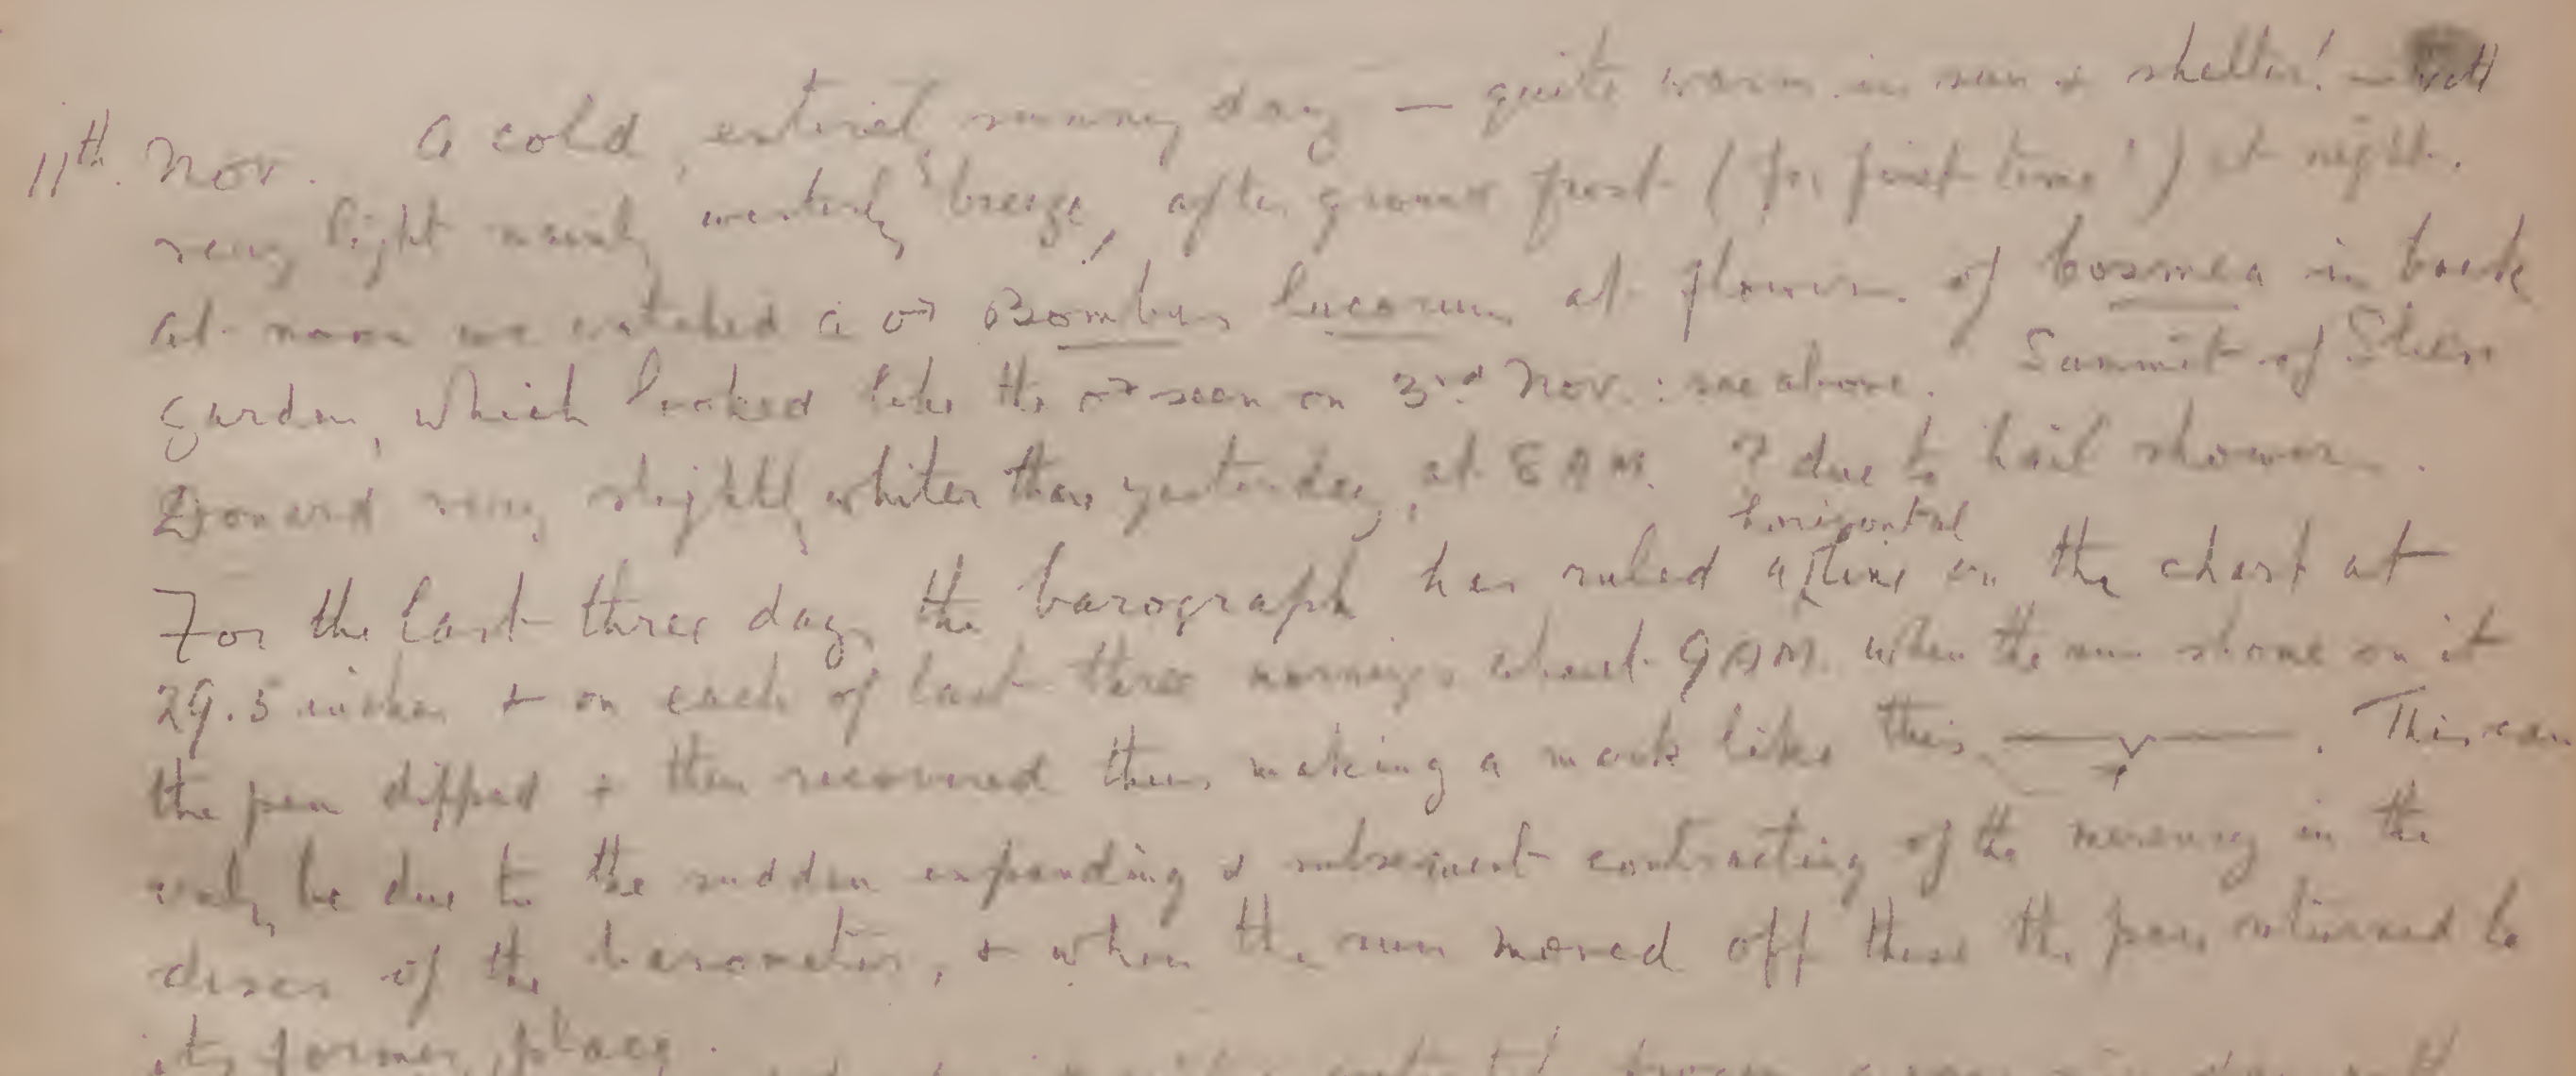 11th. Nov. A cold, entirely sunny day — quite warm in sun & shelter! — with
very light mainly westerly breeze, after ground frost (for first time!) at night.
At noon we watched a ♂ Bombus lucorum at flowers of Cosmea in back
garden, which looked like the ♂ seen on 3rd Nov.: see above. Summit of Slieve
Donard very slightly whiter than yesterday, at 8 AM. ? due to hail showers.
horizontal
For the last three days the barograph has ruled a line on the chart at
29.5 inches & on each of last three mornings about 9 AM. when the sun shone on it
the pen dipped & then recovered thus making a mark like this . This can
only be due to the sudden expanding & subsequent contracting of the mercury in the
discs of the barometer, & when the sun moved off these the pen returned to
its former place.